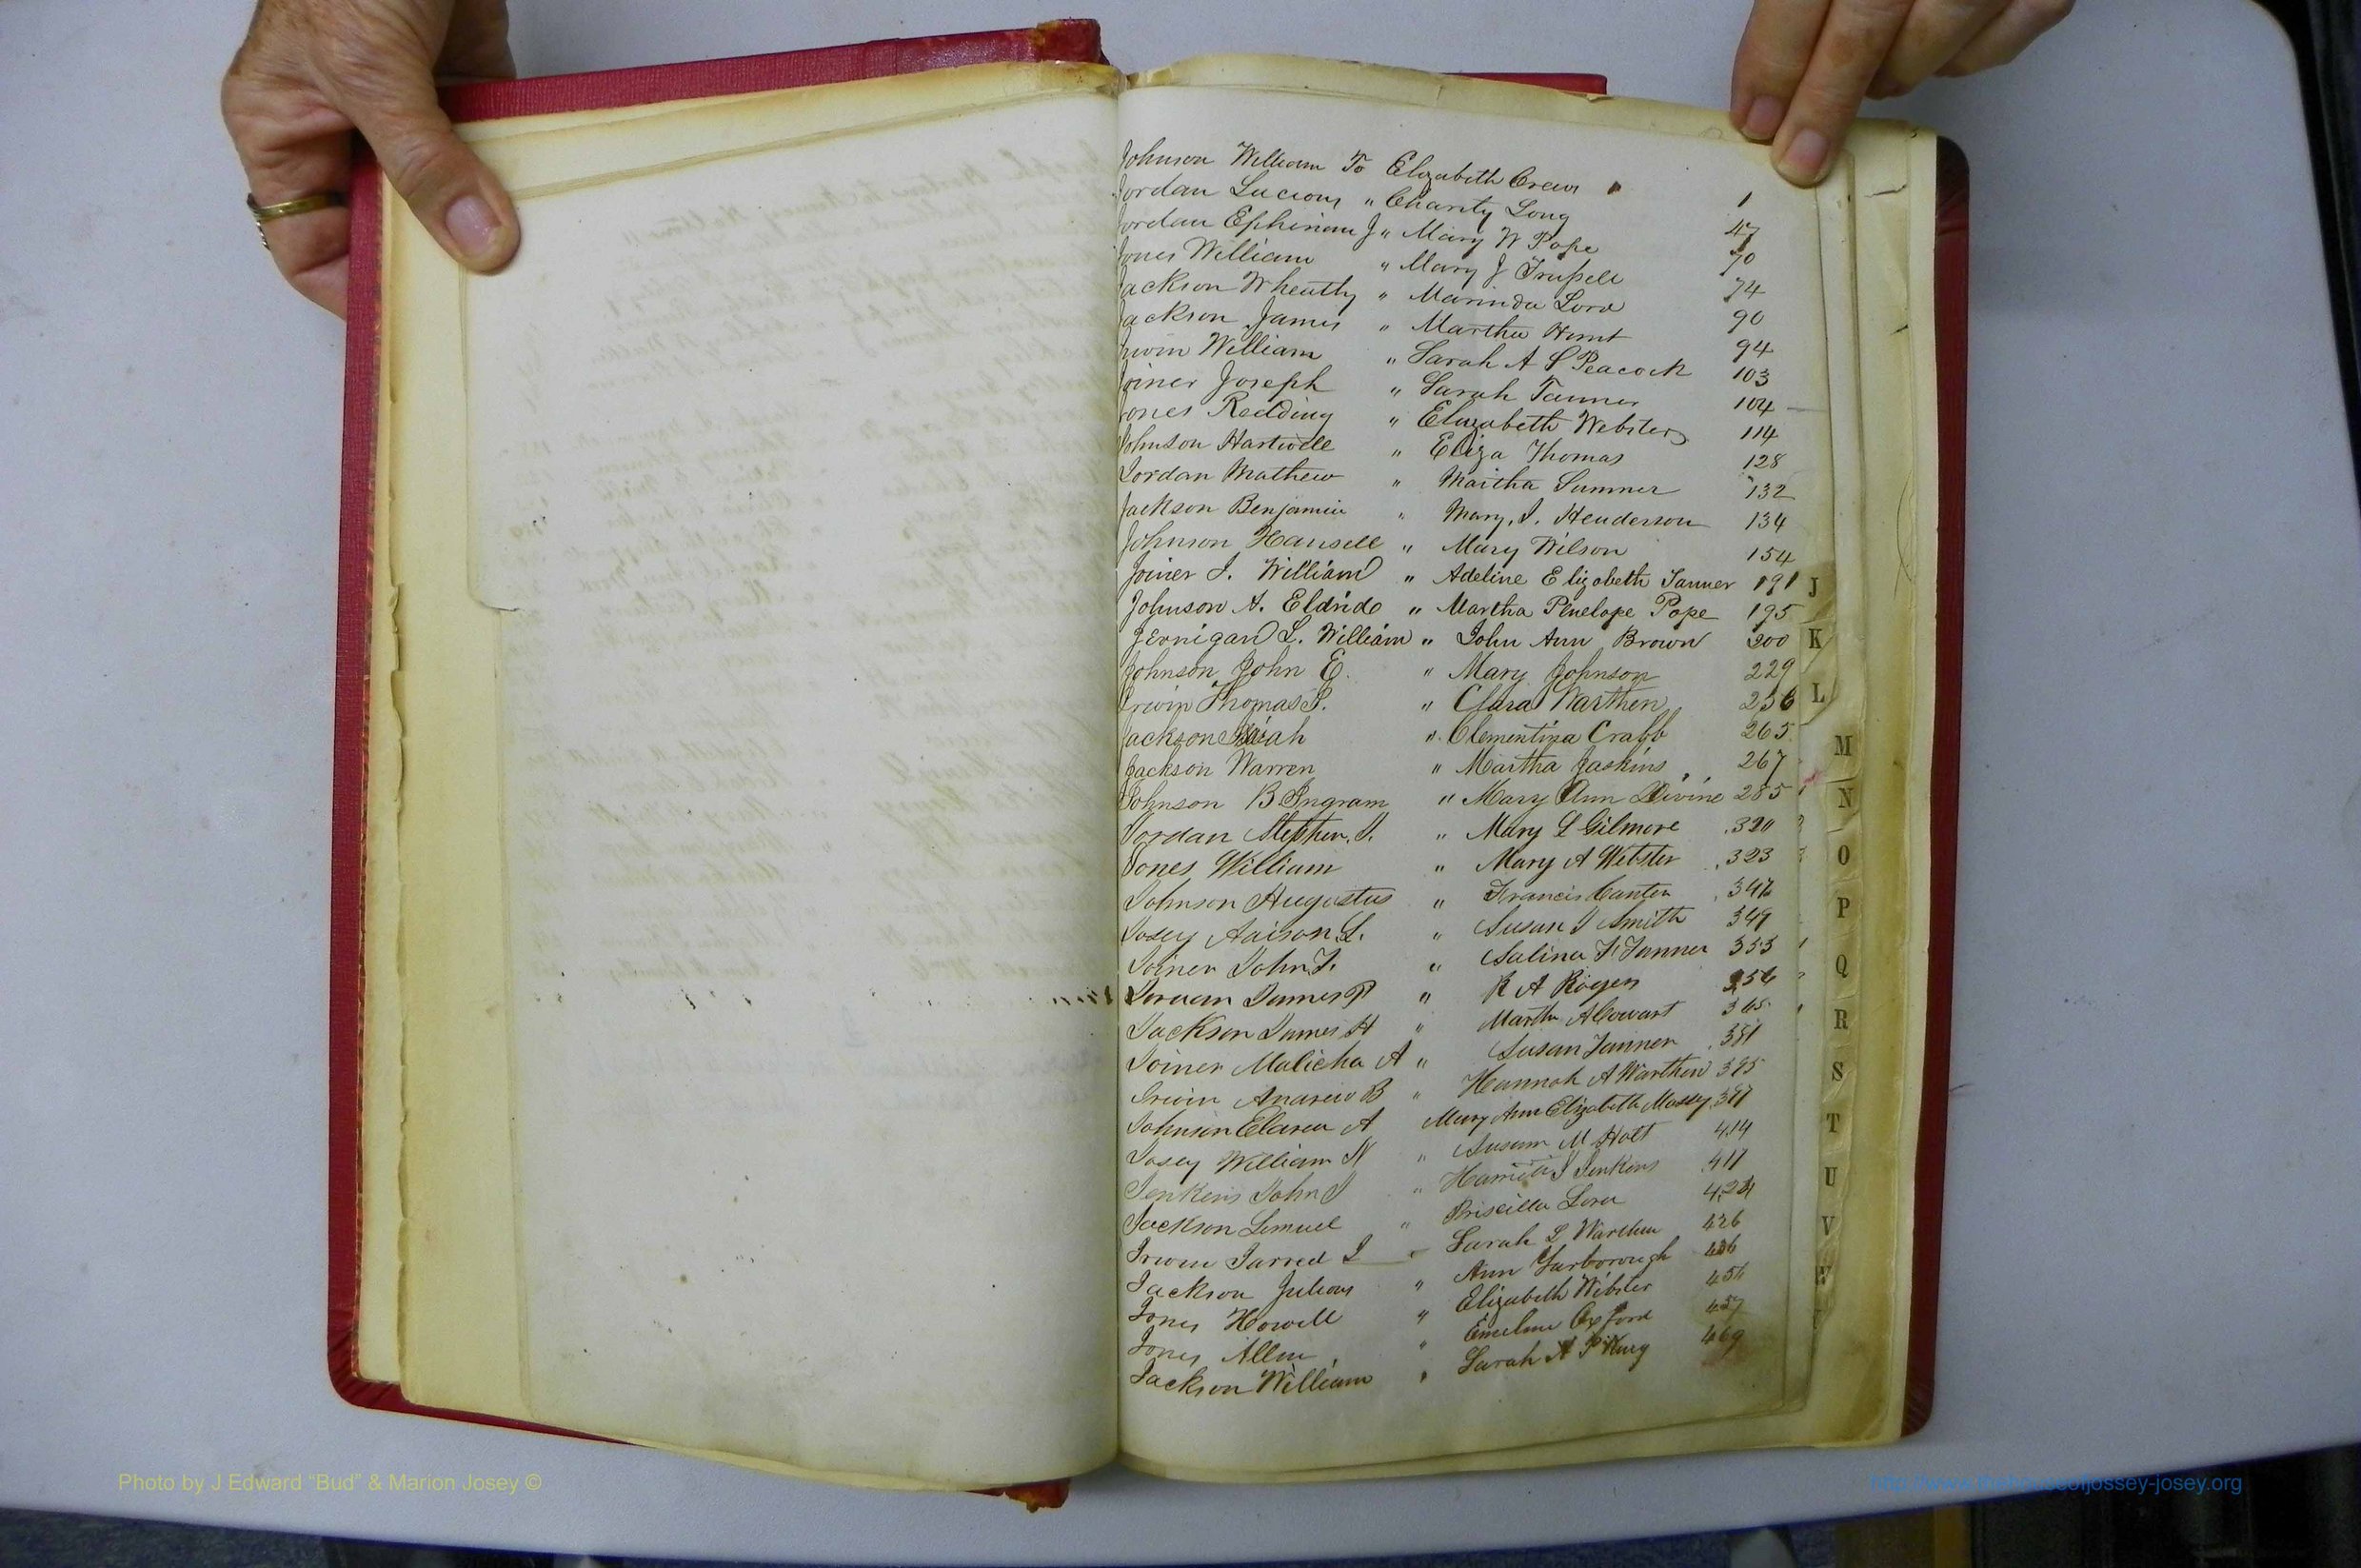 Johnson William To Elizabeth Crews 1
Jordan Lucious " Charity Long 47
Jordan Ephiriam J " Mary W Pope 70
Jones William " Mary J Trussell 74
Jackson Wheatly " Marinda Lord 90
Jackson James " Martha Hunt 94
Irwin William " Sarah A S Peacock 103
Joiner Joseph " Sarah Tanner 104
Jones Redding " Elizabeth Webster 114
Johnson Hartwell " Eliza Thomas 128
Jordan Mathew " Martha Sumner 132
Jackson Benjamin " Mary, I. Henderson 134
Johnson Hansell " Mary Wilson 154
Joiner I. William " Adeline Elizabeth Tanner 191
Johnson A. Eldrido " Martha Penelope Pope 195
Jernigan L. William " John Ann Brown 200
Johnson John E. " Mary Johnson 229
Irwin Thomas " Clara Warthen 256
Jackson " Clementina Crabb 265
Jackson Warren " Martha Jaskins 267
Johnson B. Ingram " Mary Ann Divine 285
Jordan Stephen. " Mary L Gilmore 320
Jones William " Mary A Webster 323
Johnson Augustus " Francis Canter
Josey L. " Susan J Smith 349
Joiner John " Salina F Tanner 353
James P " R A Rogers
Jackson James H " Martha A Cowart 365
Joiner Malicha A " Susan Tanner 381
Irwin Andrew B " Hannah A Warthen 395
Johnson A Mary Ann Elizabeth Massey 397
Josey William N " Susan M Holt 414
Jenkins John J " Jenkins 417
Jackson Lemuel " Priscilla Lord
Irwin Jarred I " Sarah L Warthen 426
Jackson Julious " Ann Yarborough 436
Jones Howell " Elizabeth Webster
Jones Allen " Emeline Oxford 457
Jackson William " Sarah A 469
J
K
L
M
N
O
P
Q
R
S
T
U
V
W
Photo by J Edward “Bud” & Marion Josey ©
http://www.thehouseofjossey-josey.org